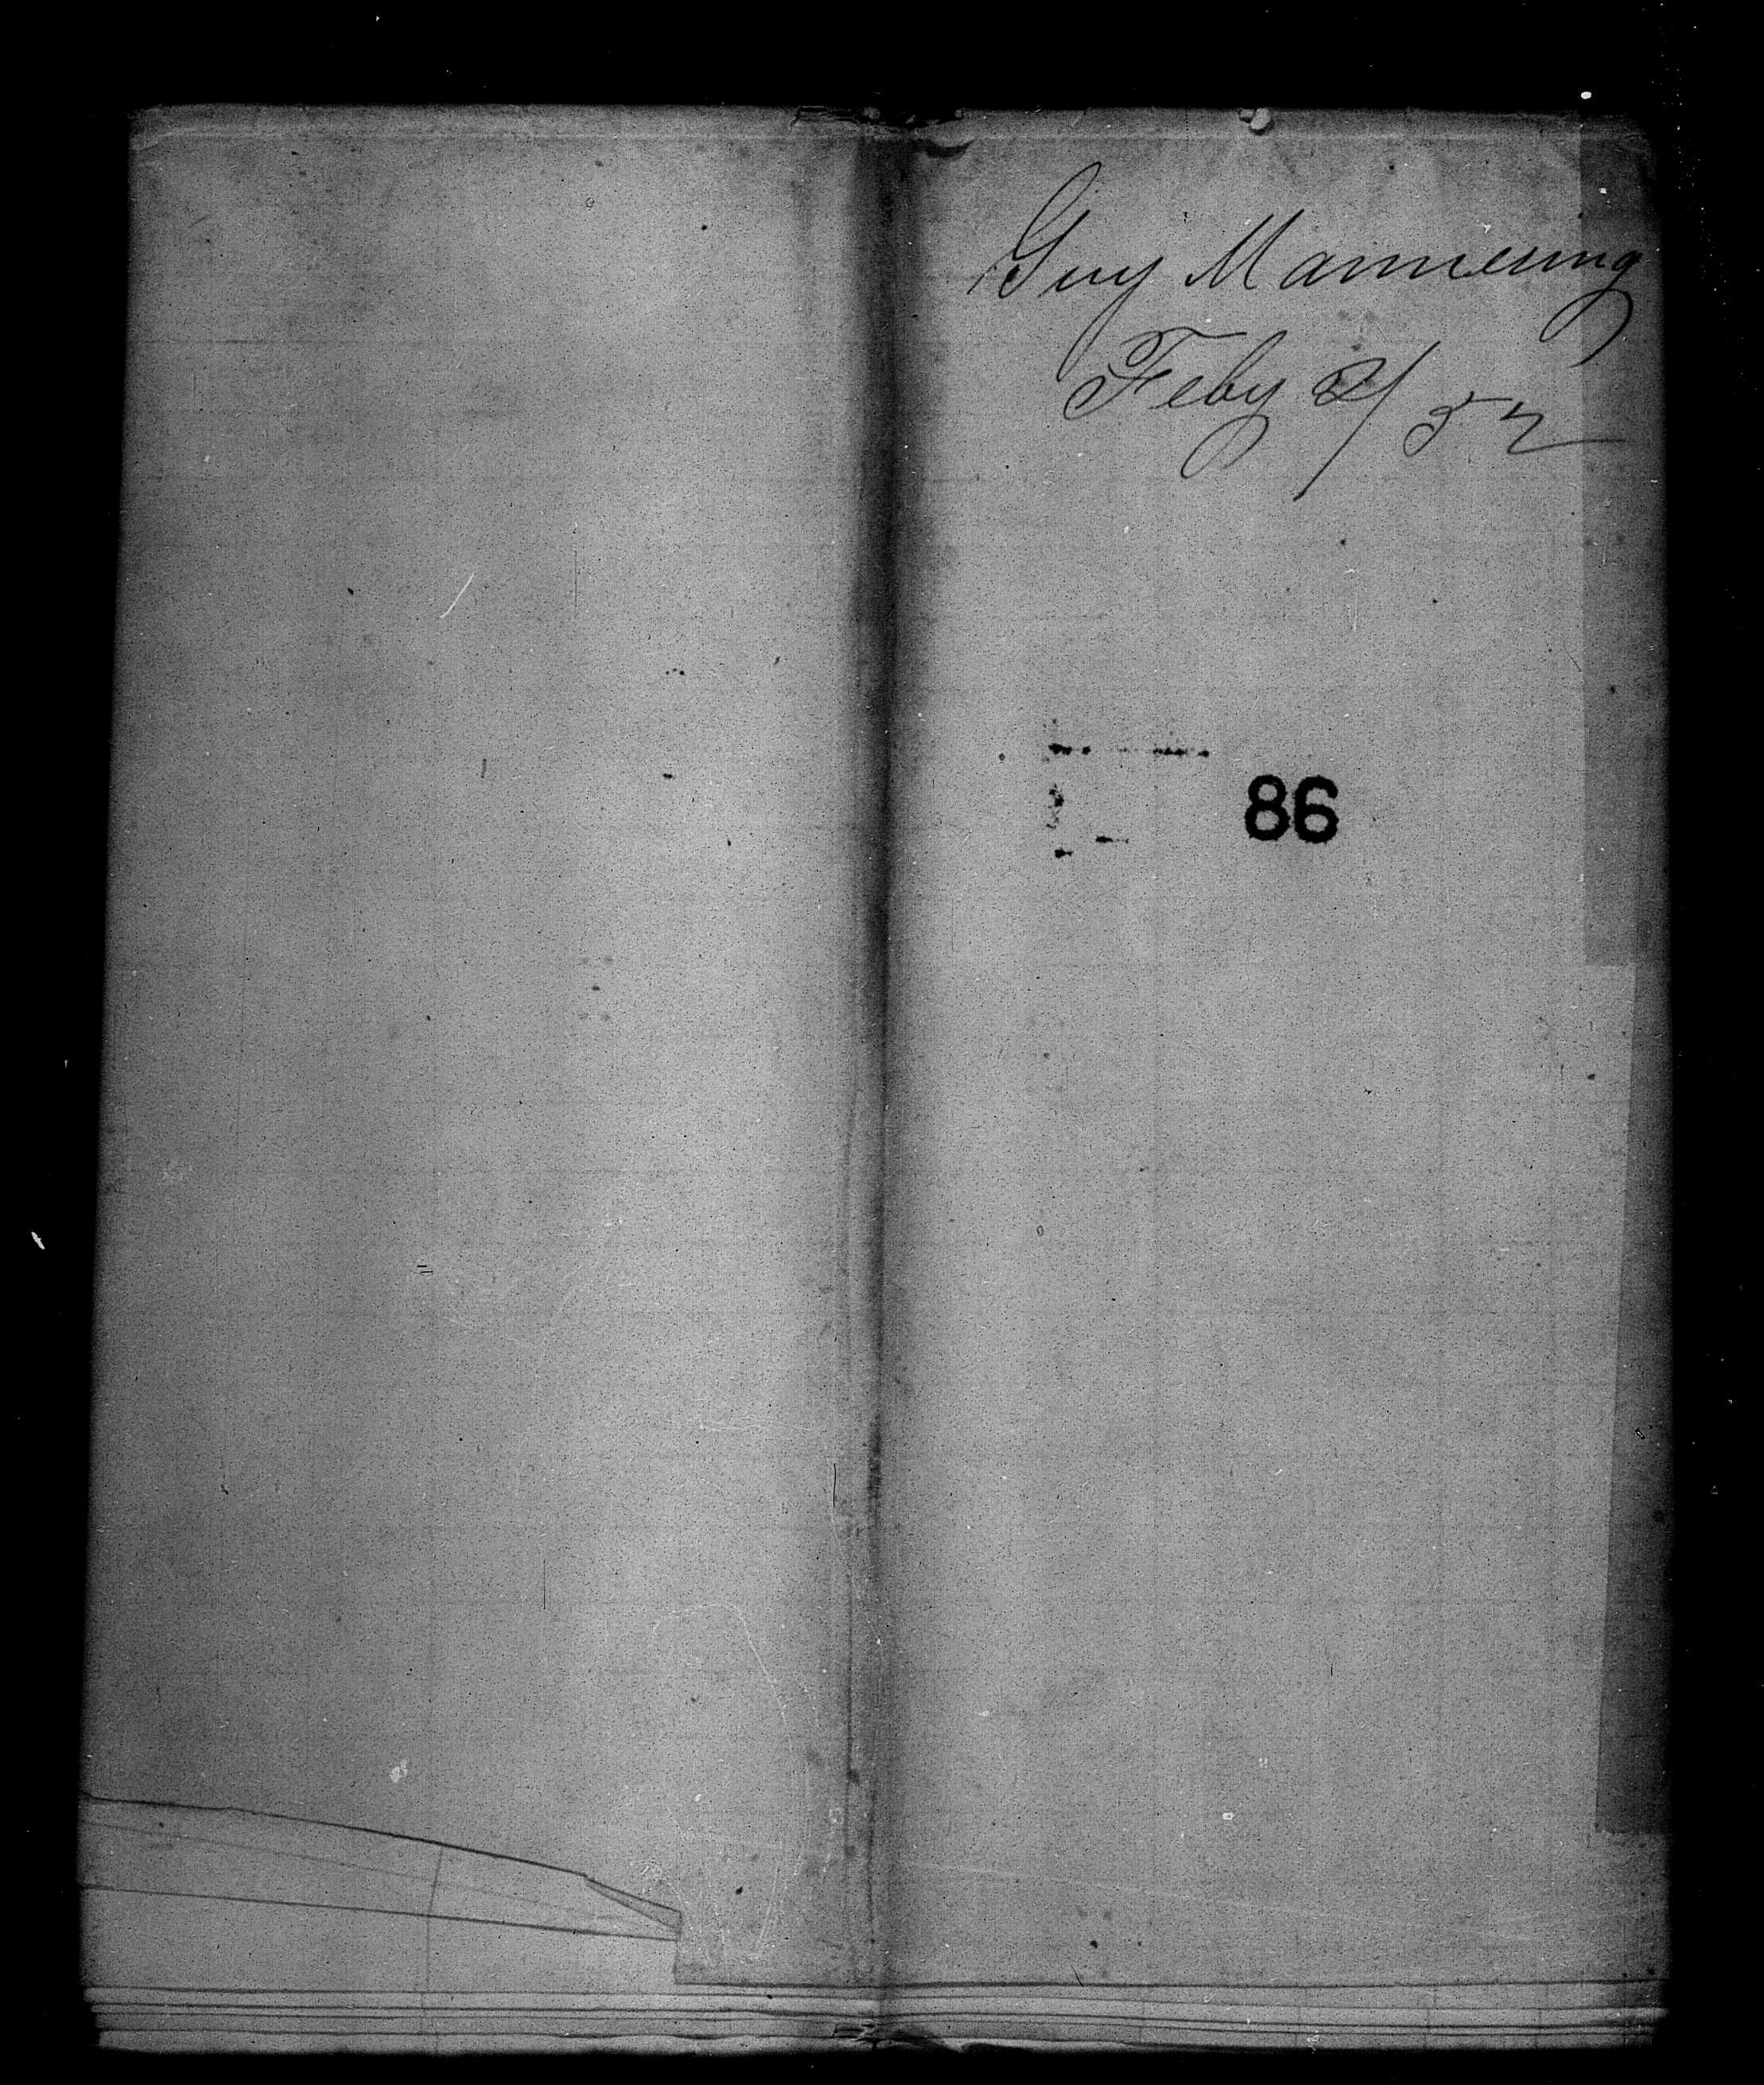 Guy Mannering
Feby 2/52
86